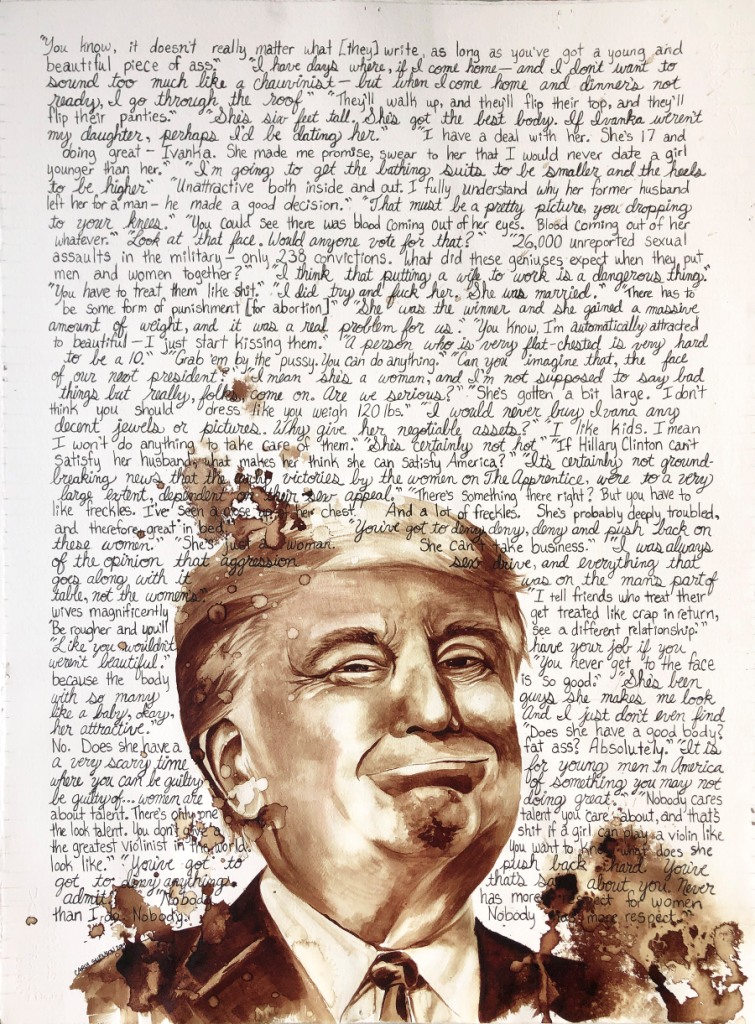 "You know, it doesn't really matter what [they] write, as long as you've got a young and
beautiful piece of ass." "I have days where, if I come home — and I don't want to
sound too much like a chauvinist — but when I come home and dinner's not
ready, I go through the roof." "They'll walk up, and they'll flip their top, and they'll
flip their panties." "She's six feet tall. She's got the best body. If Ivanka weren't
my daughter, perhaps I'd be dating her." "I have a deal with her. She's 17 and
doing great — Ivanka. She made me promise, swear to her that I would never date a girl
younger than her." "I'm going to get the bathing suits to be smaller and the heels
to be higher" "Unattractive both inside and out. I fully understand why her former husband
left her for a man — he made a good decision." "That must be a pretty picture, you dropping
to your knees." "You could see there was blood coming out of her eyes. Blood coming out of her
whatever." "Look at that face. Would anyone vote for that?" "26,000 unreported sexual
assaults in the military — only 238 convictions. What did these geniuses expect when they put
men and women together?" "I think that putting a wife to work is a dangerous thing."
"You have to treat them like shit." "I did try and fuck her. She was married." "There has to
be some form of punishment [for abortion]" "She was the winner and she gained a massive
amount of weight, and it was a real problem for us." "You know, I'm automatically attracted
to beautiful — I just start kissing them." "A person who is very flat-chested is very hard
to be a 10." "Grab 'em by the pussy. You can do anything." "Can you imagine that, the face
of our next president? "I mean she's a woman, and I'm not supposed to say bad
things but really, folks, come on. Are we serious?" "She's gotten a bit large. I don't
think you should dress like you weigh 120 lbs." "I would never buy Ivana any
decent jewels or pictures. Why give her negotiable assets?" "I like kids. I mean
I won't do anything to take care of them." "She's certainly not hot" "If Hillary Clinton can't
satisfy her husband, what makes her think she can satisfy America?" "It's certainly not ground-
breaking news that the early victories by the women on The Apprentice, were to a very
large extent, dependent on their sex appeal." "There's something there right? But you have to
like freckles. I've seen a close up of her chest. And a lot of freckles. She's probably deeply troubled,
and therefore great in bed." "You've got to deny, deny, deny and push back on
these women." "She's just a woman. She can't take business." "I was always
of the opinion that aggression sex drive, and everything that
goes along with it was on the man's part of
table, not the women's" "I tell friends who treat their
wives magnificently get treated like crap in return,
Be rougher and you'll see a different relationship.""
"Like you wouldn't have your job if you
weren't beautiful." "You never get to the face
because the body is so good." "She's been
with so many guys she makes me look
like a baby, okay, And I just don't even find
her attractive." "Does she have a good body?
No. Does she have a fat ass? Absolutely." "It is
a very scary time for young men in America
where you can be guilty of something you may not
be guilty of... women are doing great." "Nobody cares
about talent. There's only one talent you care about, and that's
the look talent. You don't give a shit if a girl can play a violin like
the greatest violinist in the world. You want to know what does she
look like." "You've got to push back hard. You've
got to deny anything that's said about you. Never
admit." "Nobody has more respect for women
than I do. Nobody. Nobody has more respect."